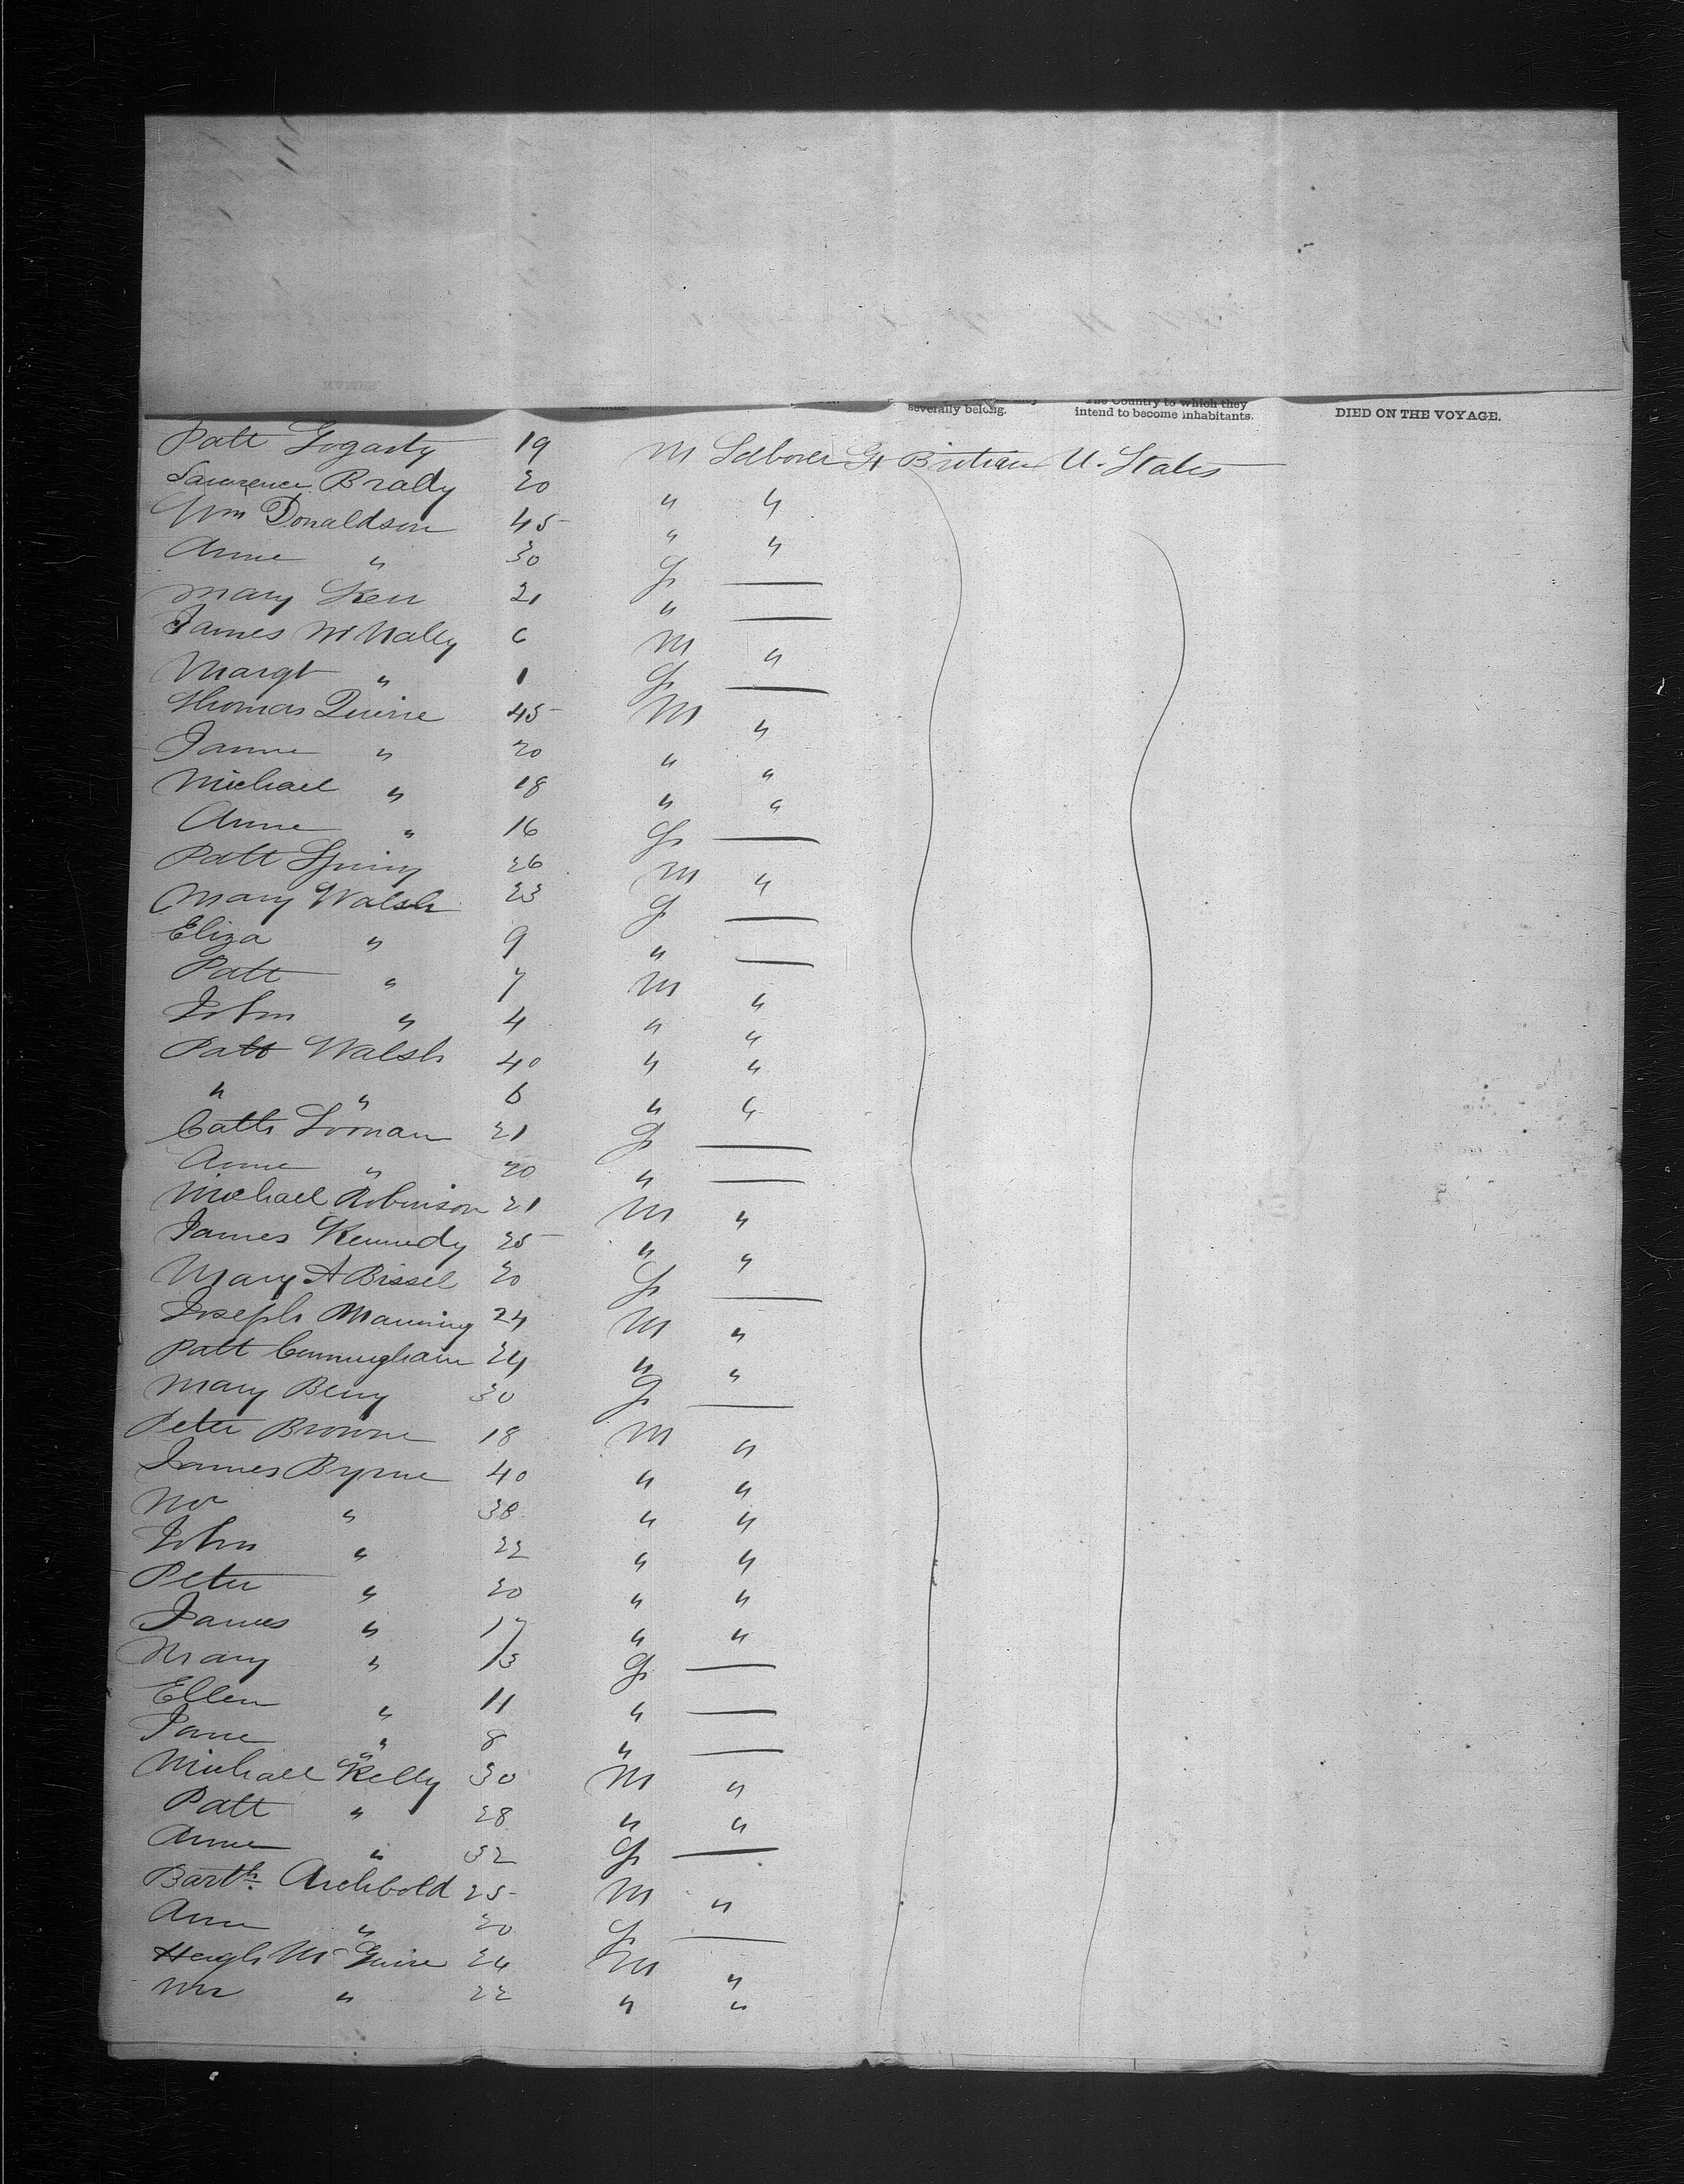 severally belong. The Country to which they intend to become inhabitants. DIED ON THE VOYAGE.
Patt Gogarty 19 M Laborer Gt Britian U. States
Lawrence Brady 20 " "
Wm Donaldson 45 " "
Anne " 30 F —
Mary Kerr 21 " —
James McNally 6 M "
Margt " 1 F —
Thomas Quine 45 M "
" 20 " "
Michael " 18 " "
Anne " 16 F —
Patt 26 M "
Mary Walsh 23 F —
Eliza " 9 " —
Patt " 7 M "
John " 4 " "
Patt Walsh 40 " "
" " 6 " "
Cath 21 F —
Anne " 20 " —
Michael Robinson 21 M "
James Kennedy 25 " "
Mary A Bissel 20 F —
Joseph Manning 24 M "
Patt Cunningham 24 " "
Mary Berry 30 F —
Peter Browne 18 M "
James Byrne 40 " "
" 38 " "
John " 22 " "
Peter " 20 " "
James " 17 " "
Mary " 13 F —
Ellen " 11 " —
Jane " 8 " —
Michael Kelly 30 M "
Patt " 28 " "
Anne " 32 F —
Barth. Archbold 25 M "
Ann " 20 F —
Hugh McGuire 24 M "
" 22 " "